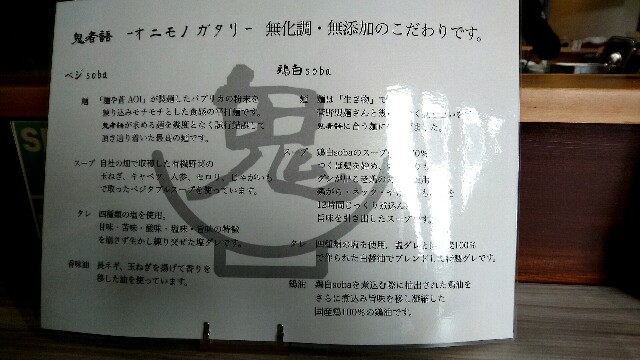 鬼者語 ーオニモノガタリー 無化調・無添加のこだわりです。
ベジsoba
麺 「麺や蒼 AOI」が製麺したパプリカの粉末を
練り込みモチモチとした食感の平打麺です。
鬼者語が求める麺を幾度となく試行錯誤して
頂き辿り着いた最良の麺です。
スープ 自社の畑で収穫した有機野菜の
玉ねぎ、キャベツ、人参、セロリ、じゃがいも
で取ったベジタブルスープを使っています。
タレ 四種類の塩を使用。
甘味・苦味・酸味・塩味・旨味の特徴
を崩さず生かし練り交ぜた塩ダレです。
香味油 長ネギ、玉ねぎを揚げて香りを
移した油を使っています。
鶏白soba
麺 麺は「生き物」で
菅野製麺さんと
鬼者語に合う麺に ました。
スープ 鶏白sobaのスープ 0%
つくば鶏を始め、
グシが出る老鶏の
鶏ガラ・ネック・
12時間じっくり煮込み
旨味を引き出したスープです。
タレ 四種類の塩を使用、塩ダレと 100%
で作られた白醤油でブレンドした特製ダレです。
鶏油 鶏白sobaを煮込む際に抽出された鶏油を
さらに煮込み旨味を移し凝縮した
国産鶏100%の鶏油です。
鬼